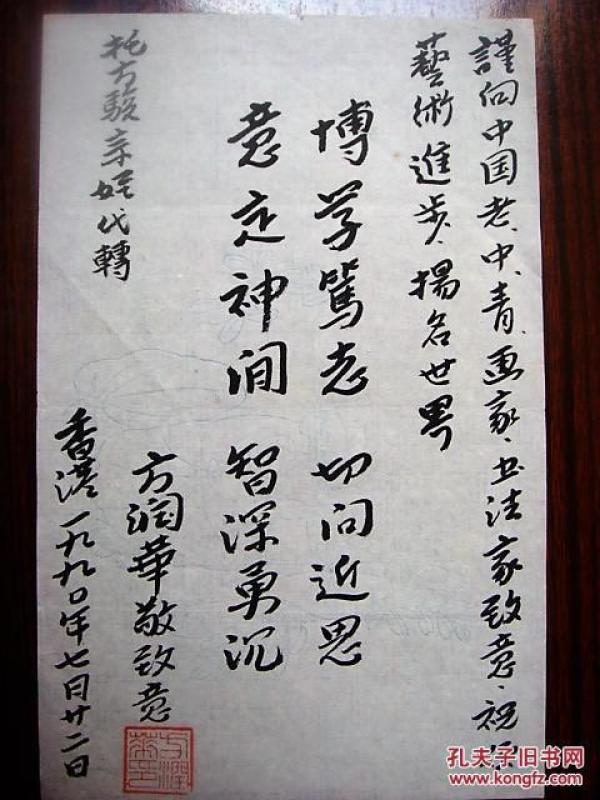 謹向中国老、中、青、画家、书法家致意、祝
藝術進步、揚名世界
博学篤志 切问近思
意定神间 智深勇沉
方润華敬致意
香港一九九〇年七月廿二日
托方駿宗姪代轉
方潤華印
孔夫子旧书网
www.kongfz.com